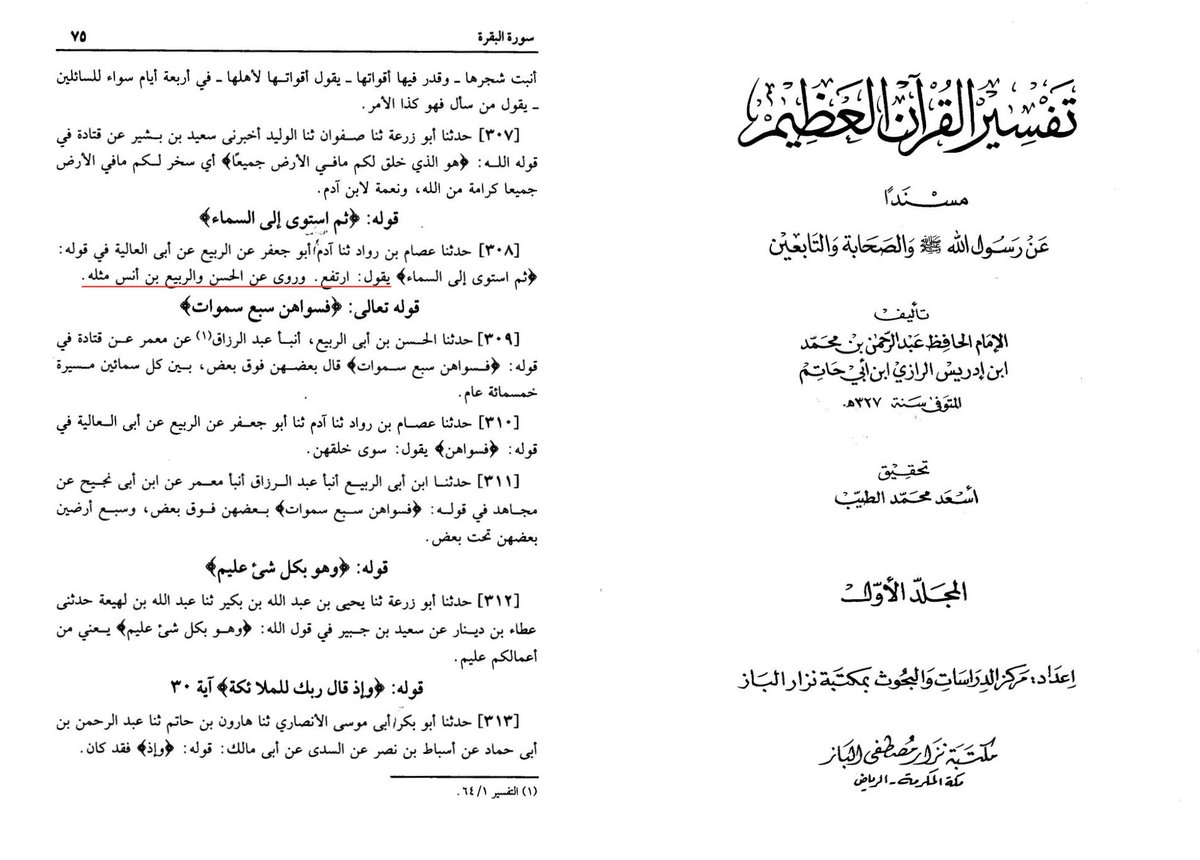 تفسير القرآن العظيم
مسندًا
عن رسول الله ﷺ والصحابة والتابعين
تأليف
الإمام الحافظ عبد الرحمن بن محمد
ابن إدريس الرازي ابن أبي حاتم
المتوفى سنة ٣٢٧هـ.
تحقيق
أسعد محمد الطيب
المجلد الأول
إعداد: مركز الدراسات والبحوث بمكتبة نزار الباز
مكتبة نزار مصطفى الباز
مكة المكرمة - الرياض
سورة البقرة ٧٥
أنبت شجرها ـ وقدر فيها أقواتها ـ يقول أقواتـها لأهلها ـ في أربعة أيام سواء للسائلين
ـ يقول من سأل فهو كذا الأمر.
[٣٠٧] حدثنا أبو زرعة ثنا صفوان ثنا الوليد أخبرنى سعيد بن بشير عن قتادة في
قوله اللـه: ﴿هو الذي خلق لكم مافي الأرض جميعًا﴾ أي سخر لكم مافي الأرض
جميعا كرامة من الله، ونعمة لابن آدم.
قوله: ﴿ثم استوى إلى السماء﴾
[٣٠٨] حدثنا عصام بن رواد ثنا آدم أبو جعفر عن الربيع عن أبى العالية في قوله:
﴿ثم استوى إلى السماء﴾ يقول: ارتفع. وروى عن الحسن والربيع بن أنس مثله.
قوله تعالى: ﴿فسواهن سبع سموات﴾
[٣٠٩] حدثنا الحسن بن أبى الربيع، أنبـأ عبد الرزاق(١) عن معمر عن قتادة في
قوله: ﴿فسواهن سبع سموات﴾ قال بعضهن فوق بعض، بين كل سمائين مسيرة
خمسمائة عام.
[٣١٠] حدثنا عصام بن رواد ثنا آدم ثنا أبو جعفر عن الربيع عن أبى العالية في
قوله: ﴿فسواهن﴾ يقول: سوى خلقهن.
[٣١١] حدثنا ابن أبى الربيع أنبأ عبد الرزاق أنبأ معمر عن ابن أبى نجيح عن
مجاهد في قوله: ﴿فسواهن سبع سموات﴾ بعضهن فوق بعض، وسبع أرضين
بعضهن تحت بعض.
قوله: ﴿وهو بكل شئ عليم﴾
[٣١٢] حدثنا أبو زرعة ثنا يحيى بن عبد الله بن بكير ثنا عبد الله بن لهيعة حدثنى
عطاء بن دينار عن سعيد بن جبير في قول الله: ﴿وهو بكل شئ عليم﴾ يعني من
أعمالكم عليم.
قوله: ﴿وإذ قال ربك للملائكة﴾ آية ٣٠
[٣١٣] حدثنا أبو بكر أبى موسى الأنصاري ثنا هارون بن حاتم ثنا عبد الرحمن بن
أبى حماد عن أسباط بن نصر عن السدى عن أبى مالك: قوله: ﴿وإذ﴾ فقد كان.
(١) التفسير ١/ ٦٤.